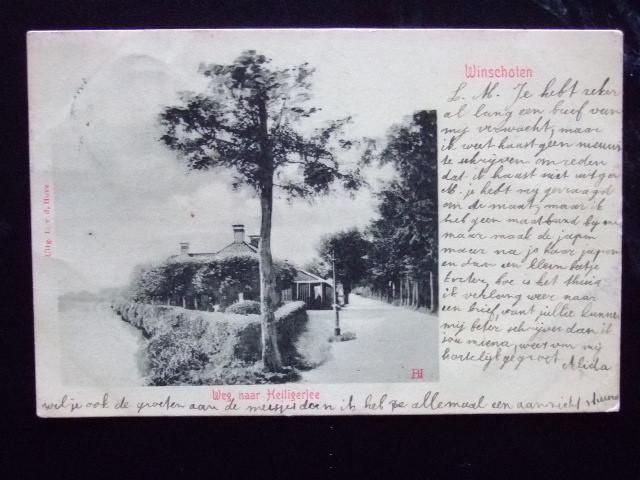 Winschoten
L. M. Je hebt zeker
al lang een brief van
mij verwacht, maar
ik weet haast geen nieuws
te schrijven om reden
dat ik haast niet uitga
M. je hebt mij gevraagd
om de maat, maar ik
heb geen maatband bij me
maar maak de japon
maar na je haar japon
en dan een klein beetje
korter, hoe is het thuis
ik verlang weer naar
een brief, want jullie kunnen
mij beter schrijven dan ik
jou miena, wees van mij
hartelijk gegroet Alida
Uitg. d. Hove
BI
Weg naar Heiligerlee
wil je ook de groeten aan de meisjes doen ik heb ze allemaal een aanzicht